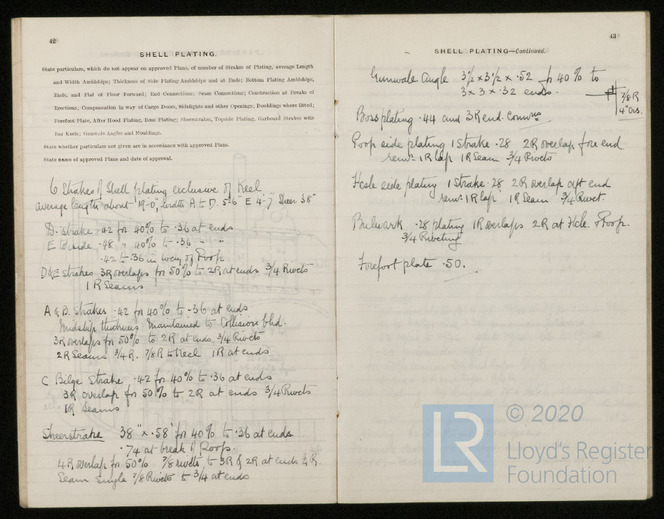 42
SHELL PLATING.
State particulars, which do not appear on approved Plans, of number of Strakes of Plating, average Length
and Width Amidships; Thickness of Side Plating Amidships and at Ends; Bottom Plating Amidships,
Ends, and Flat of Floor Forward; End Connections; Seam Connections; Construction at Breaks of
Erections; Compensation in way of Cargo Doors, Sidelights and other Openings; Doublings where fitted;
Forefoot Plate, After Hood Plating, Boss Plating; Sheerstrake, Topside Plating, Garboard Strakes with
Bar Keels; Gunwale Angles and Mouldings.
State whether particulars not given are in accordance with approved Plans.
State name of approved Plans and date of approval.
6 Strakes of Shell Plating exclusive of Keel
average length about 19-0, breadth A to D. 5-6" E 4-7 Sheer 38"
D. Strake .42 for 40% to .36 at ends
E to side .48 " 40% to .36 " "
.42 to .36 in way of Poop
D&E strakes 3R overlaps for 50% to 2R at ends 3/4 Rivets
1R Seams
A & B. Strakes .42 for 40% to .36 at ends
Midship thickness maintained to Collision bhd.
3R overlaps for 50% to 2R at ends 3/4 Rivets
2R Seams 3/4 R. 7/8 R to Keel 1R at ends
C Bilge Strake .42 for 40% to .36 at ends
3R overlap for 50% to 2R at ends 3/4 Rivets
1R Seams
Sheerstrake 38" x .58" for 40% to .36 at ends
.74 at break of Poop.
4R overlap for 50% 7/8 rivets to 3R & 2R at ends 3/4 R
Seam single 7/8 Rivets to 3/4 at ends
43
SHELL PLATING—Continued.
Gunwale Angle 3 1/2 x 3 1/2 x .52 for 40% to
3 x 3 x .32 ends.
7/8 R
4" Drs.
Boss plating .44 and 3R end. Connns
Poop side plating 1 Strake .28 2R overlap fore end
remr 1R lap 1R Seam 3/4 Rivets
Focsle side plating 1 Strake .28 2R overlap aft end
remr 1R lap 1R Seam 3/4 Rivet.
Bulwark .28 plating 1R overlaps 2R at Focsle & Poop.
3/4 Riveting
Forefoot plate .50.
LR
© 2020
Lloyd's Register
Foundation